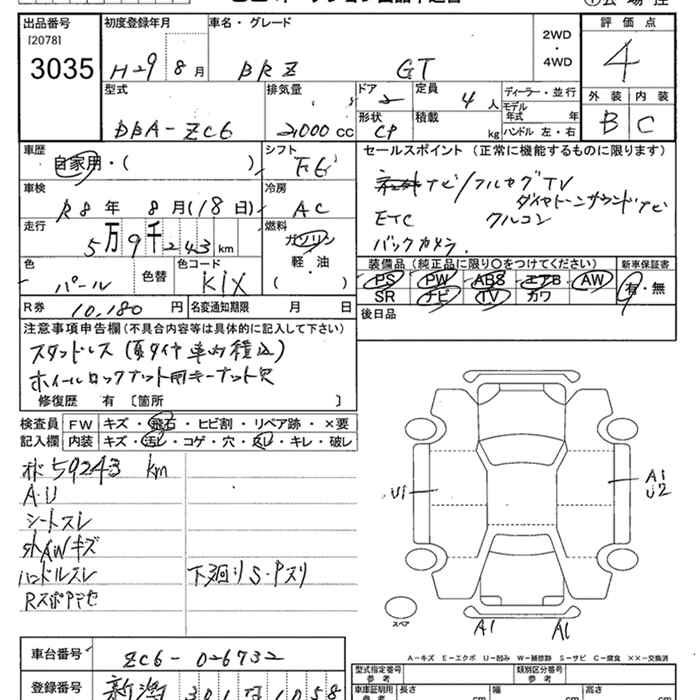 出品番号 初度登録年月 車名・グレード 2WD・4WD 評価点
[2078]
3035 H29年 8月 BRZ GT 4
型式 排気量 ドア 2 定員 4人 ディーラー・並行 外装 内装
DBA-ZC6 2,000cc 形状 CP 積載 kg モデル年式 年 ハンドル 左・右 B C
車歴 シフト セールスポイント(正常に機能するものに限ります)
自家用・( ) F6
ナビ/フルセグTV
車検 冷房 ダイヤトーンサウンドナビ
R8年 8月(18日) AC ETC クルコン
走行 燃料 バックカメラ
5万9千243km ガソリン
軽・油
色 色替 色コード ( ) 装備品(純正品に限り○をつけてください) 新車保証書
パール K1X PS PW ABS エアB AW 有・無
R券 10,180円 名変通知期限 月 日 SR ナビ TV カワ
注意事項申告欄(不具合内容等は具体的に記入して下さい) 後日品
スタッドレス(夏タイヤ車内積込)
ホイールロックナット用キーナット欠
修復歴 有〔箇所 〕
検査員 FW キズ・飛石・ヒビ割・リペア跡・×要
記入欄 内装 キズ・汚レ・コゲ・穴・スレ・キレ・破レ
59243 km
A・U
シートスレ
外AWキズ
ハンドルスレ 下廻りS・Pスリ
Rスポアセ
U1 A1
U2
スペア
A1 A1
A-キズ E-エクボ U-凹み W-補修跡 S-サビ C-腐食 ××-交換済
車台番号 ZC6-026732 型式指定番号 参考 類別区分番号 参考
登録番号 新潟 301 な 1058 車庫証明用 参考 長さ cm 幅 cm 高さ cm